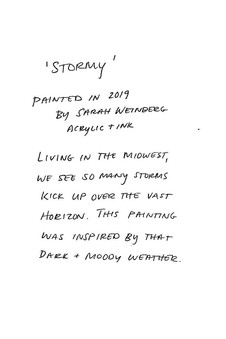 'STORMY'
PAINTED IN 2019
BY SARAH WEINBERG
ACRYLIC + INK
LIVING IN THE MIDWEST,
WE SEE SO MANY STORMS
KICK UP OVER THE VAST
HORIZON. THIS PAINTING
WAS INSPIRED BY THAT
DARK + MOODY WEATHER.